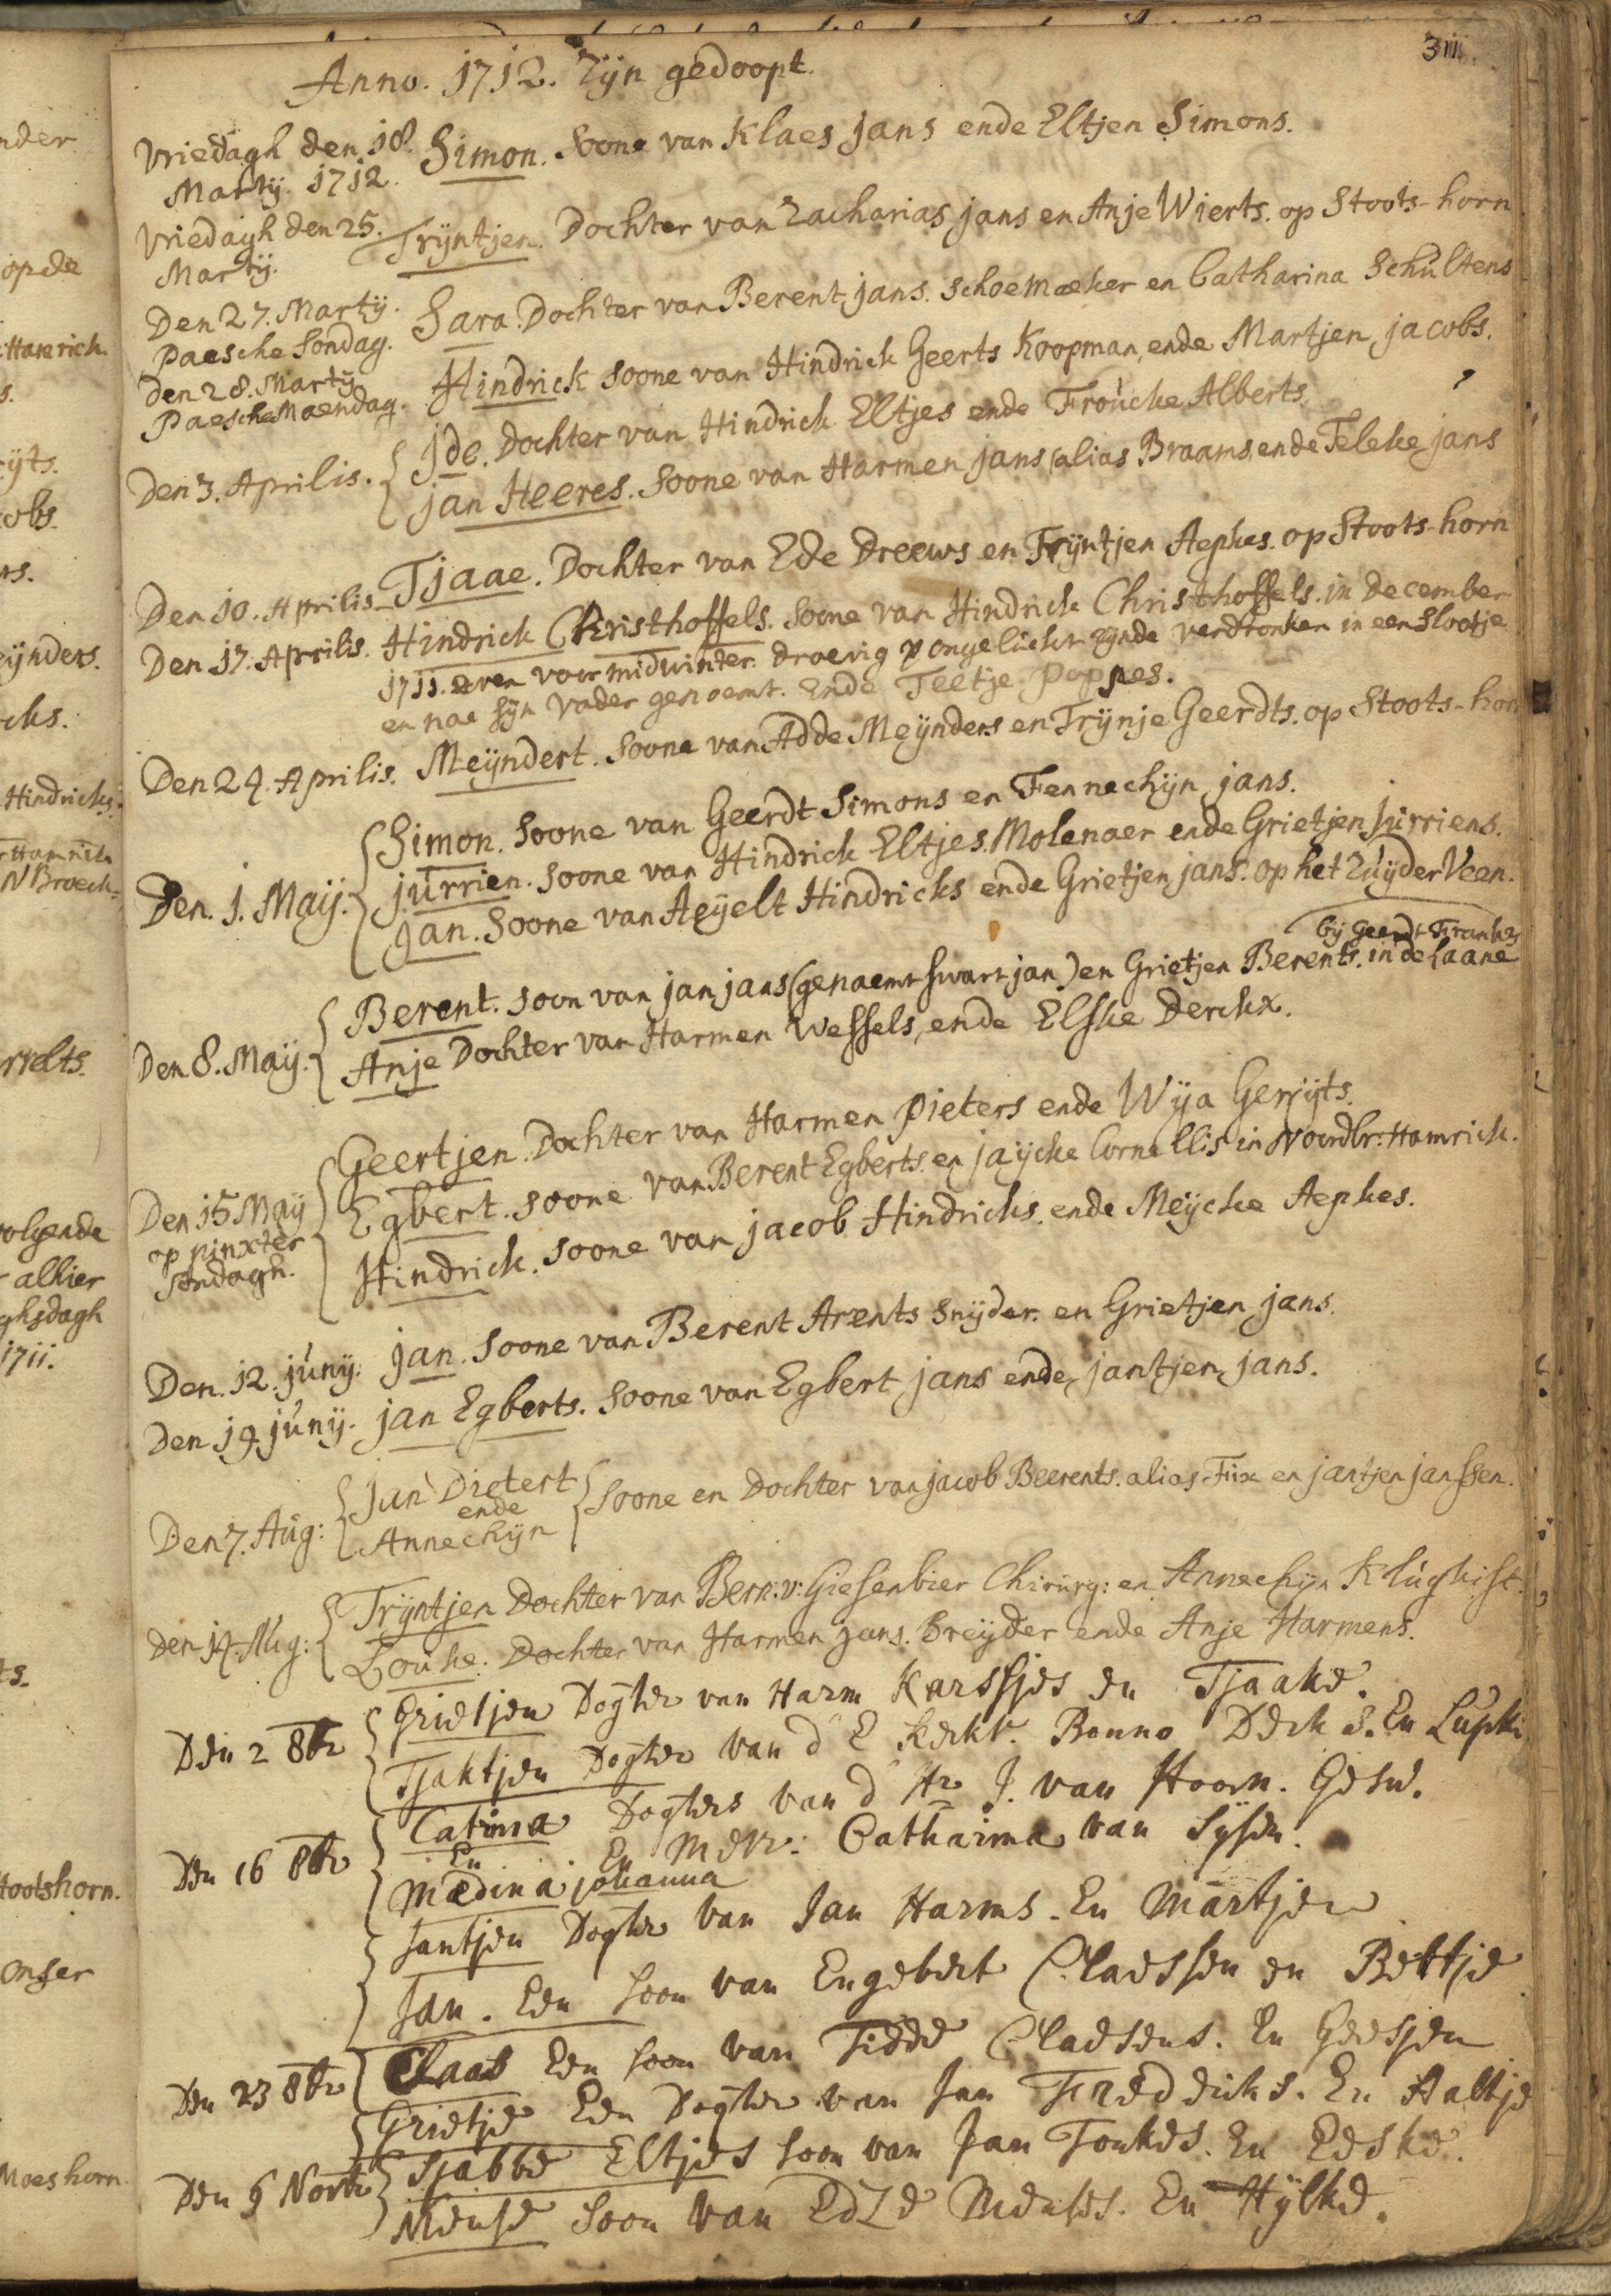 Anno. 1712. Zijn gedoopt.
Vriedagh den 18. Simon. Soone van Klaes jans ende Eltjen Simons.
Martij. 1712.
Vriedagh den 25. Trijntjen. Dochter van Zacharias jans en Anje Wierts. op Stoots-horn
Martij.
Den 27. Martij. Sara. Dochter van Berent jans. Schoemaeker en Catharina Schultens
Paesche Sondag.
Den 28. Martij Hindrick soone van Hindrick Geerts Koopman, ende Martjen jacobs.
Paesche Maendag.
Den 3. Aprilis. Jde. Dochter van Hindrick Eltjes ende Froucke Alberts.
jan Heeres. Soone van Harmen jans (alias Braams, ende Teleke jans
Den 10. Aprilis Tjaae. Dochter van Ede Dreews en Trijntjen Aepkes. op Stoots-horn
Den 17. Aprilis. Hindrick Christhoffels. Soone van Hindrick Christhoffels. in december
1711. even voor midwinter. droevig ongeluckt zijnde verdronken in een slootje
en nae sijn vader genoemt. Ende Teetje Poppes.
Den 24. Aprilis. Meijndert. Soone van Adde Meijnders en Trijnje Geerdts. op Stoots-horn
Simon. Soone van Geerdt Simons en Fennechijn jans.
Den. 1. Maij. jurrien. Soone van Hindrick Eltjes. Molenaer ende Grietjen jurriens.
Jan. Soone van Aeijelt Hindricks ende Grietjen jans. op het Zuijder Veen.
bij Geerdt Franks
Berent. soon van jan jans (genaemt swart jan) en Grietjen Berents. in de Laane
Den 8. Maij. Anje Dochter van Harmen Wessels, ende Elske Derckx.
Geertjen. Dochter van Harmen Pieters ende Wija Gerrijts.
Den 15 Maij Egbert. soone van Berent Egberts. en jaijcke Cornellis in Noordbr: Hamrick.
op pinxter
Sondagh. Hindrick. Soone van jacob Hindricks. ende Meijcke Aepkes.
Den. 12. junij. jan. Soone van Berent Arents Snijder. en Grietjen jans.
Den 19 junij. jan Egberts. Soone van Egbert jans ende, jantjen jans.
Den 7. Aug: Jan Dietert
ende Soone en Dochter van jacob Beerents. alias Fix en jantjen janssen.
Annechijn
Den 14. Aug: Trijntjen Dochter van Bern: v: Giesenbier Chirurg: en Annechijn Klughist.
Louke. Dochter van Harmen jans. Breijder ende Anje Harmens.
Den 2 8br Grietjen Dogter van Harm Karssjes en Tjaake.
Tjaktjen Dogter van d E kerkv. Bonno Derks. En Lupke
Den 16 8br Catrina Dogters van d Hr J. van Hoorn. Gesw.
En En Mevr: Catharina van Sijsen.
Medina johanna
Jantjen Dogter van Jan Harms. En Martjen
Jan. Een soon van Engebert Claessen en Bettje
Den 23 8br Claas Een soon van Tidde Claesens. En Geesjen
Grietje Een Dogter van Jan Fredericks. En Aaltje
Den 6 Novr Sjabbe Eltjes soon van Jan Tonkes. En Eeske.
Mense soon van Edze Menses. En Hijlke.